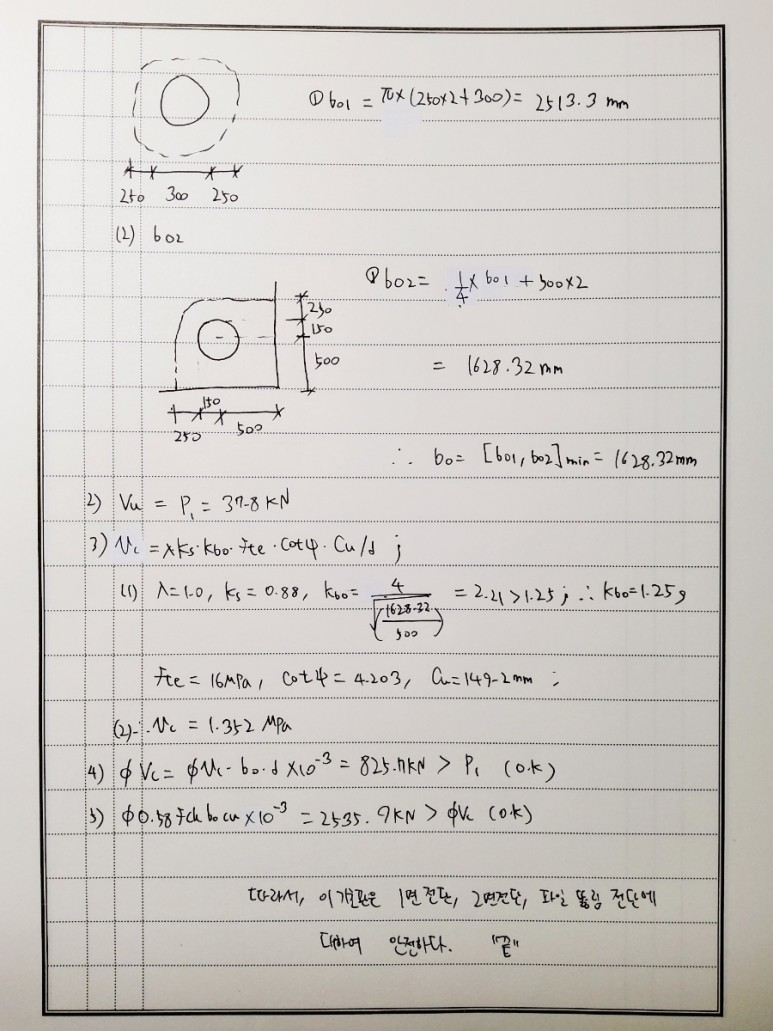 ① b01 = π×(250×2+300) = 2513.3 mm
250 300 250
(2) b02
① b02 = 1/4 × b01 + 500×2
250
150
500
= 1628.32 mm
150
250 500
∴ b0 = [b01, b02]min = 1628.32mm
2) Vu = P1 = 37.8 KN
3) Vc = λ ks·kbo·fte·cotψ·Cu/d ;
(1) λ=1.0, ks = 0.88, kbo = 4/√(1628.32/500) = 2.21 > 1.25 ; ∴ kbo=1.25,
fte = 16MPa, cotψ = 4.203, Cu=149.2mm ;
(2) ∴ Vc = 1.352 MPa
4) φVc = φVc·b0·d×10⁻³ = 825.7KN > P1 (O.K)
5) φ0.58fck b0 cu×10⁻³ = 2535.9KN > φVc (O.K)
따라서, 이 기초판은 1면전단, 2면전단, 파일 뚫림 전단에
대하여 안전하다. "끝"